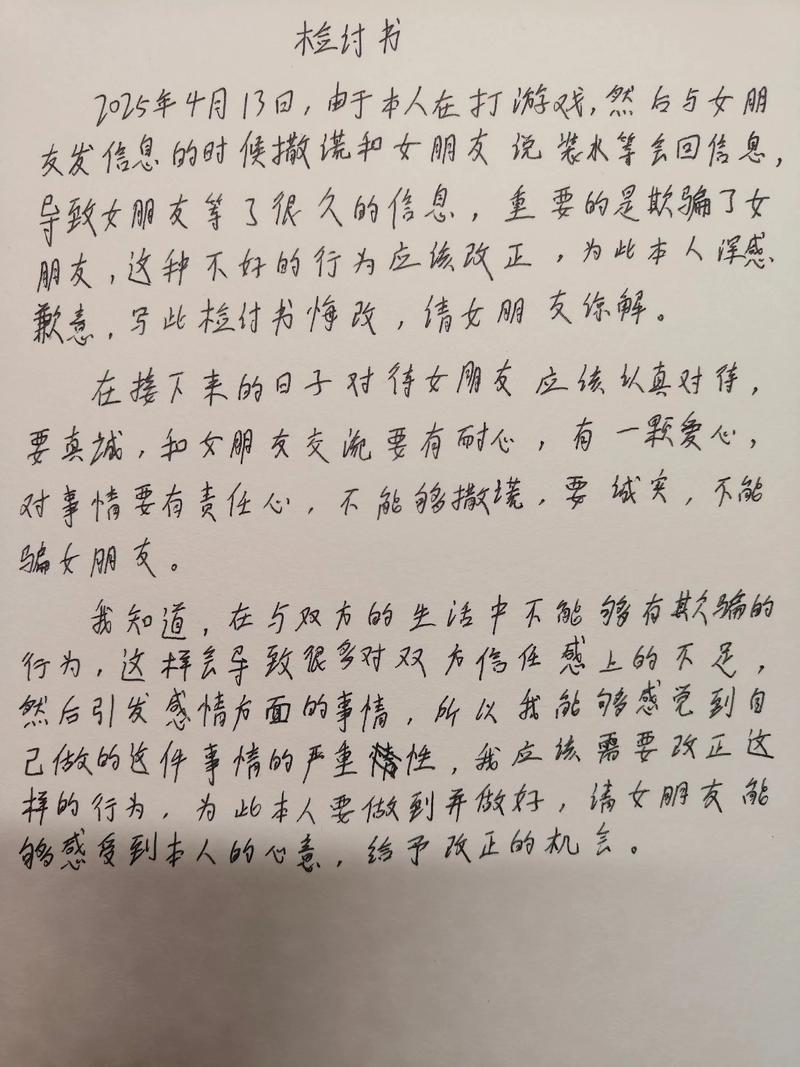 检付书
2025年4月13日,由于本人在打游戏,然后与女朋
友发信息的时候撒谎和女朋友说装水等会回信息,
导致女朋友等了很久的信息,重要的是欺骗了女
朋友,这种不好的行为应该改正,为此本人深感
歉意,写此检付书悔改,请女朋友谅解。
在接下来的日子对待女朋友应该认真对待,
要真诚,和女朋友交流要有耐心,有一颗爱心,
对事情要有责任心,不能够撒谎,要诚实,不能
骗女朋友。
我知道,在与双方的生活中不能够有欺骗的
行为,这样会导致很多对双方信任感上的不足,
然后引发感情方面的事情,所以我能够感觉到自
己做的这件事情的严重性,我应该需要改正这
样的行为,为此本人要做到并做好,请女朋友能
够感受到本人的心意,给予改正的机会。